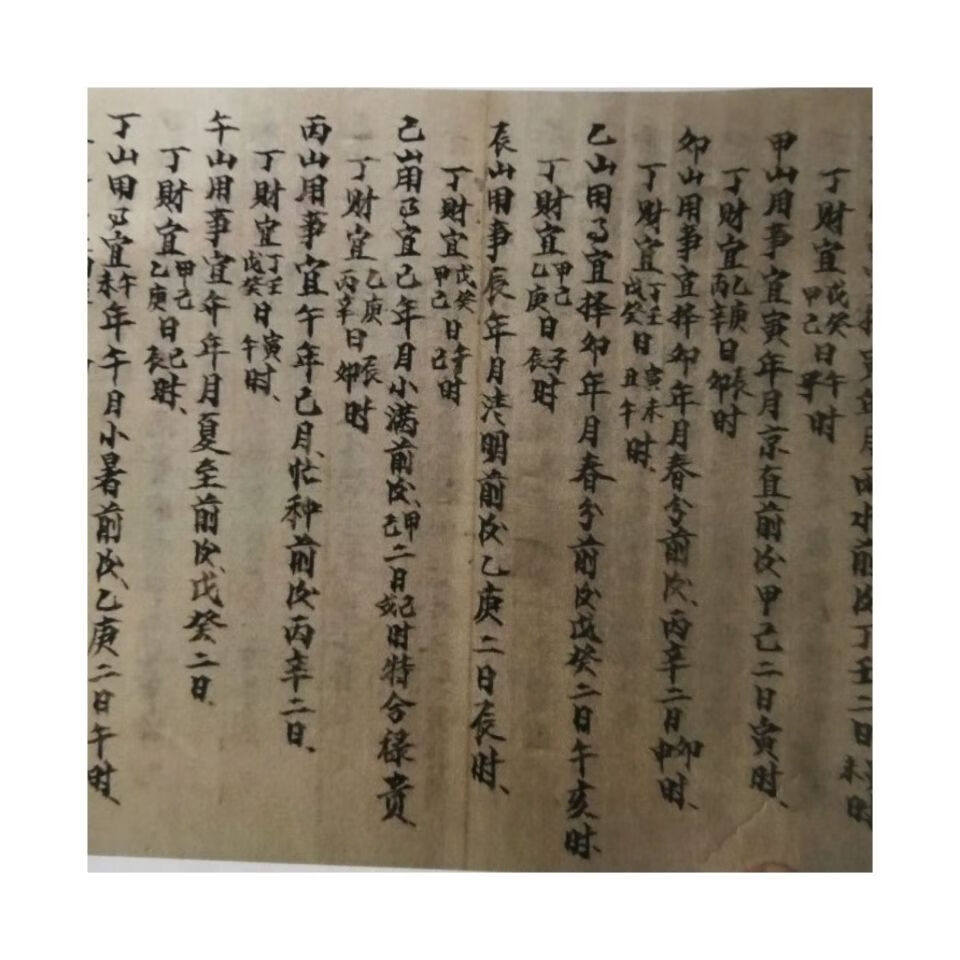 年月雨水前後丁壬二日未時
丁財宜戊癸甲己日午時
甲山用事宜寅年月京直前後甲己二日寅時、
丁財宜乙庚丙辛日辰卯時
卯山用事宜择卯年月春分前後、丙辛二日卯申時、
丁財宜丁壬戊癸日寅未丑午時、
乙山用事宜择卯年月春分前後戊癸二日午亥時、
丁財宜甲己乙庚日子辰時
辰山用事辰年月清明前後乙庚二日辰時、
丁財宜戊癸甲己日午己時
己山用事宜己年月小满前後、甲己二日己時特合禄贵
丁財宜乙庚丙辛日辰卯時
丙山用事宜午年己月、忙种前後丙辛二日、
丁財宜丁壬戊癸日寅午時、
午山用事宜午年月夏至前後、戊癸二日、
丁財宜甲己乙庚日己辰時、
丁山用事宜午未年午月小暑前後、乙庚二日午時、